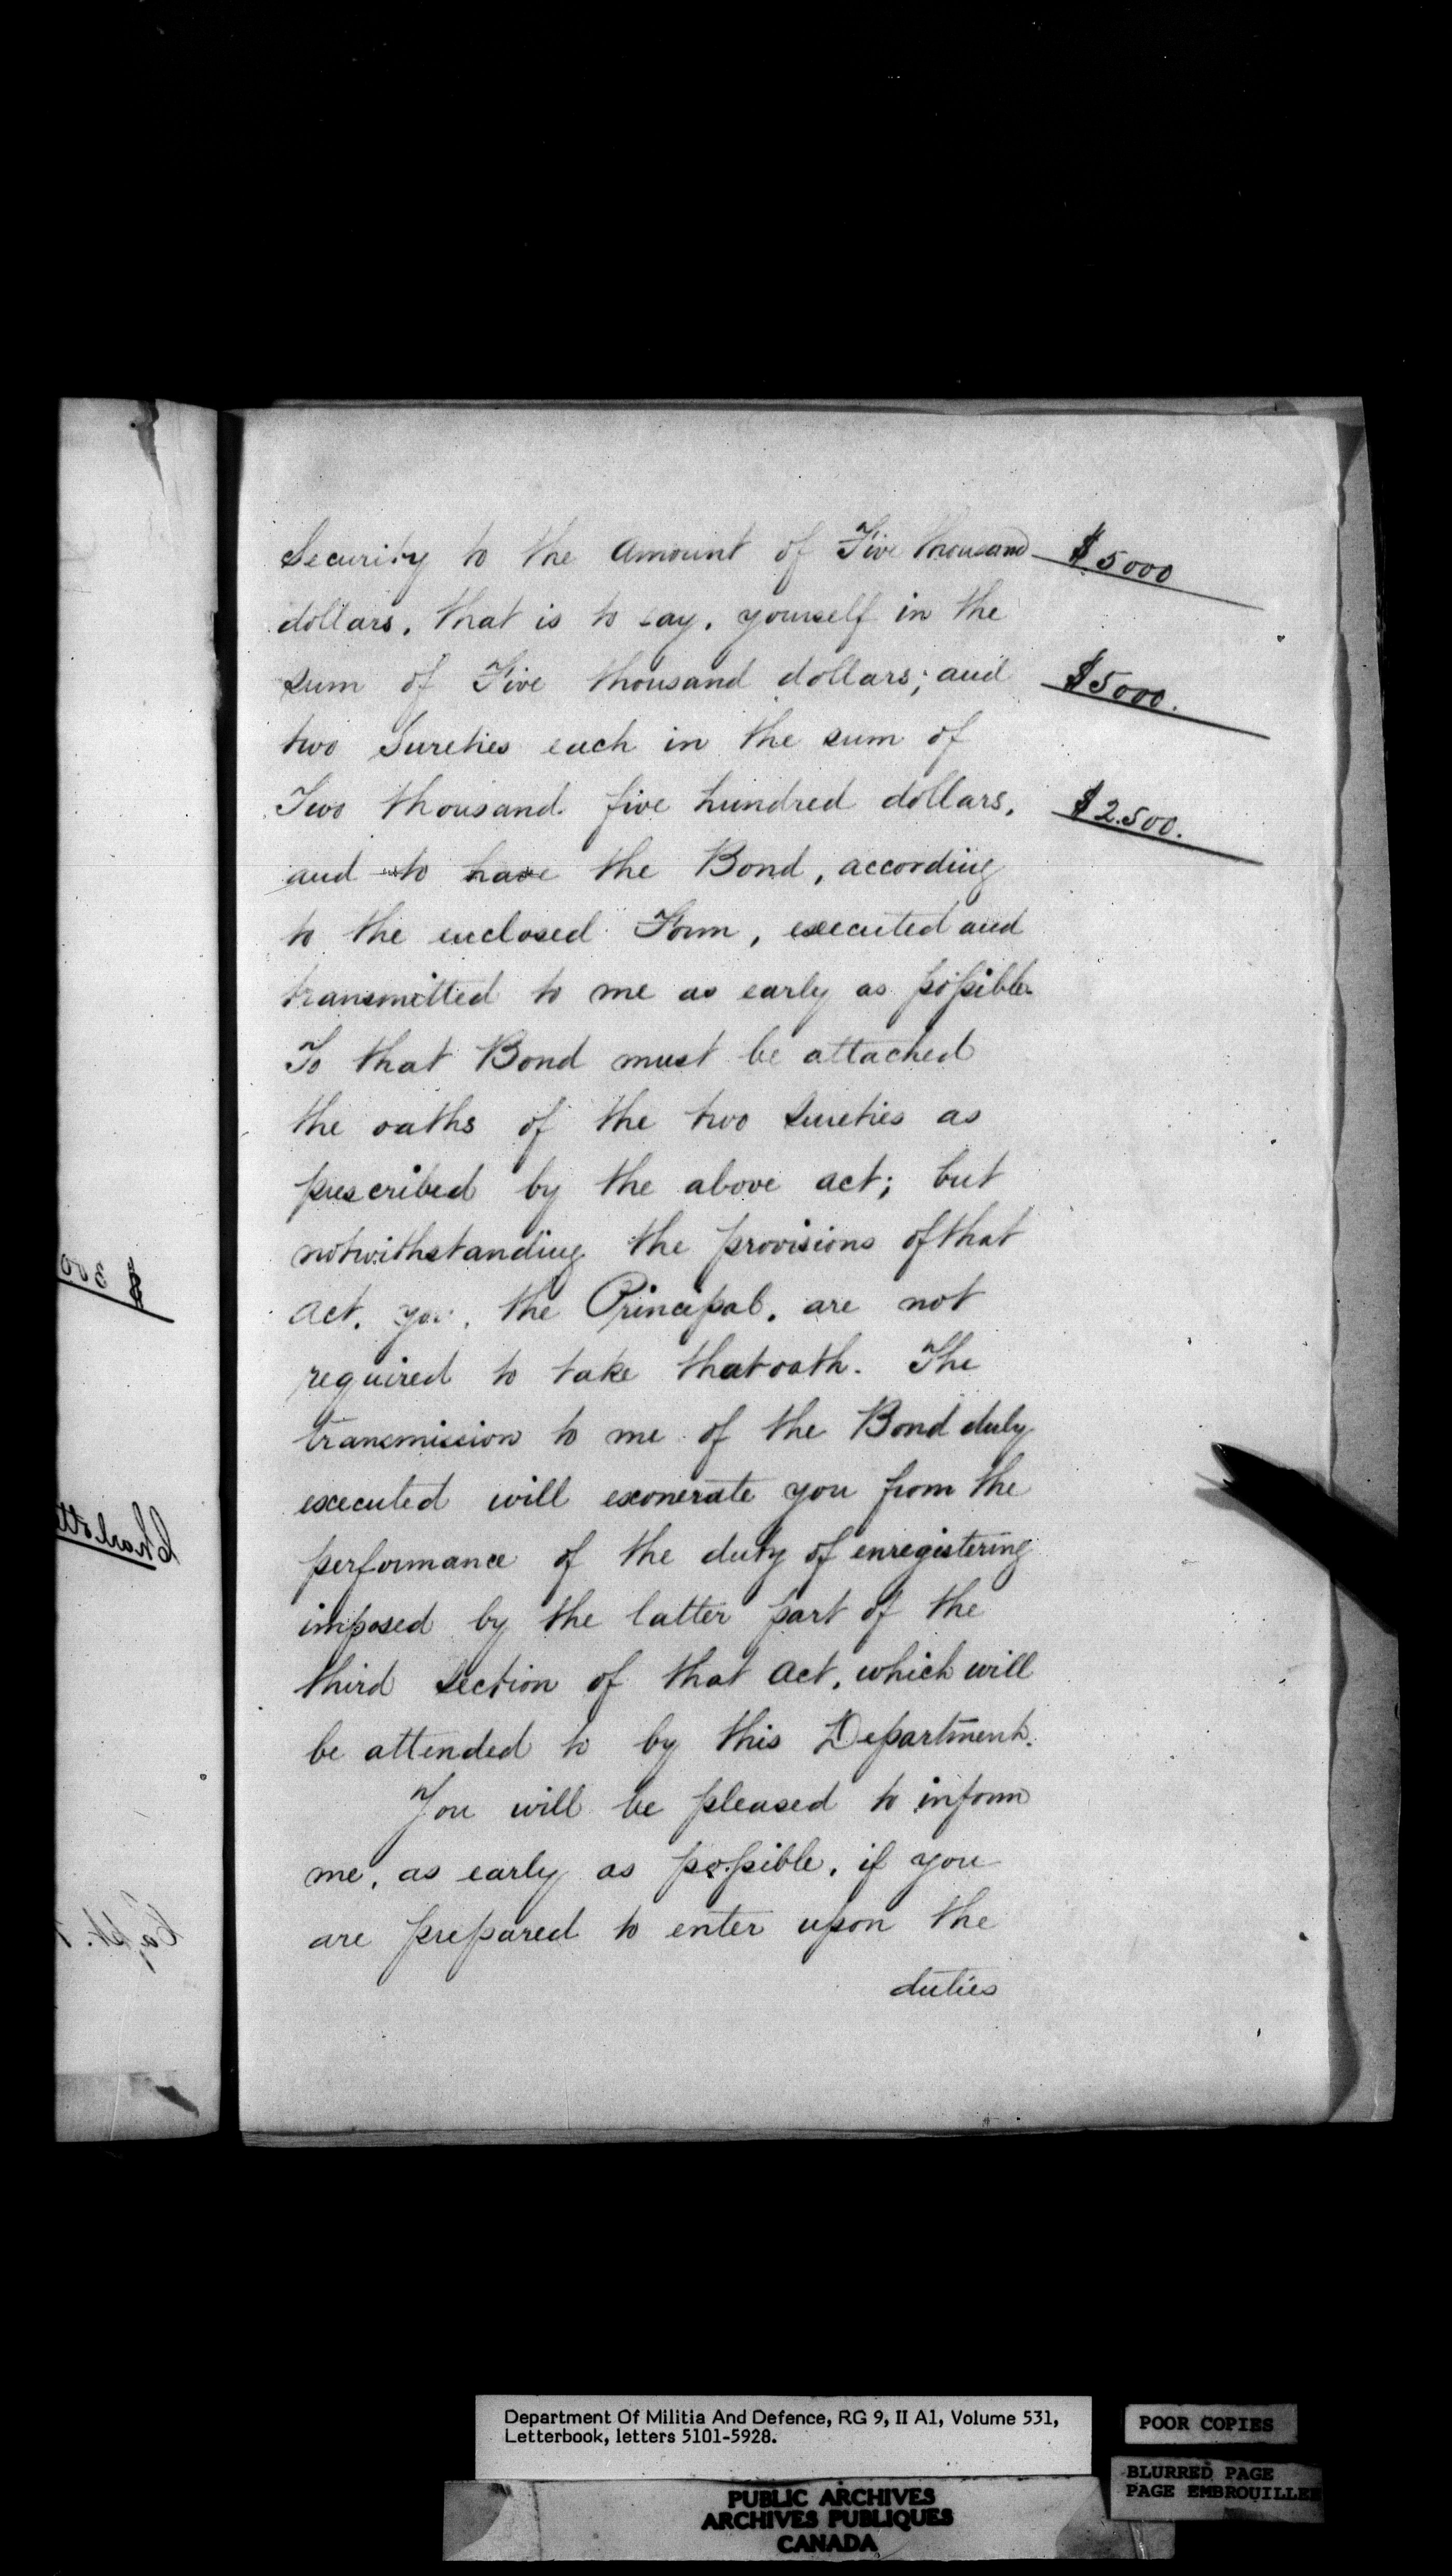 Security to the Amount of Five thousand $5000
dollars, that is to say, yourself in the
sum of Five thousand dollars; and $5000.
two Sureties each in the sum of
Two thousand five hundred dollars, $2.500.
and to have the Bond, according
to the enclosed Form, executed and
transmitted to me as early as possible.
To that Bond must be attached
the oaths of the two Sureties as
prescribed by the above act; but
notwithstanding the provisions of that
Act, you, the Principal, are not
required to take that oath. The
transmission to me of the Bond duly
executed will exonerate you from the
performance of the duty of enregistering
imposed by the latter part of the
third Section of that Act, which will
be attended to by this Department.
You will be pleased to inform
me, as early as possible, if you
are prepared to enter upon the
duties
$ 300
Charlotte
Capt.
Department Of Militia And Defence, RG 9, II A1, Volume 531,
Letterbook, letters 5101-5928.
POOR COPIES
BLURRED PAGE
PAGE EMBROUILLEE
PUBLIC ARCHIVES
ARCHIVES PUBLIQUES
CANADA